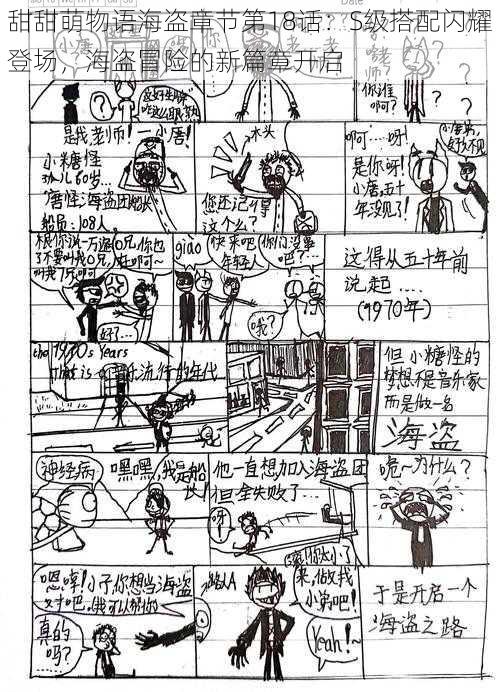 甜甜萌物语海盗章节第18话：S级搭配闪耀
登场，海盗冒险的新篇章开启
老师？
你谁
啊？
？
？
？
是我老师！一小唐！
小糖怪
孙儿60岁…
唐怪海盗团船长
船员：108人
木头
您还记得
这个么？
啊……呀！
是你呀！
小唐,五十
年没见了！
好久不见
根你说一万遍
了不要叫我0兄,
叫我
好…？
giao
快来吧
年轻人
你们没事
吧？…
哦？
这得从五十年前
说起……
(1970年)
the 1970s Years
That is
流行的年代
但小糖怪的
梦想不是音乐家
而是做一名
海盗
神经病
嘿嘿,我是船
长！
他一直想加入海盗团
但全失败了…
呀！
咦~为什么？
嗯哼！小子,你想当海盗
对吧,我可以帮你
真的
吗？
路人A
来,做我
小弟吧！
Yeah！~
于是开启一个
海盗之路